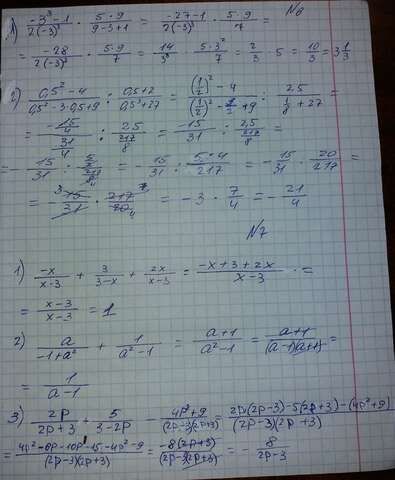 N6
1) (-3^3 - 1)/(2(-3)^3) · (5·9)/(9-3+1) = (-27-1)/(2(-3)^3) · (5·9)/7 =
= (-28)/(2(-3)^3) · (5·9)/7 = 14/3^3 · (5·3^2)/7 = 2/3 · 5 = 10/3 = 3 1/3
2) (0,5^2 - 4)/(0,5^2 - 3·0,5 + 9) : (0,5+2)/(0,5^3+27) = ((1/2)^2 - 4)/((1/2)^2 - +9) : 2,5/(1/8 + 27) =
= (-15/4)/(31/4) : 2,5/(217/8) = -15/31 : 2,5/(217/8) =
= -15/31 : = 15/31 : (5·4)/217 = -15/31 · 20/217 =
= -15/31 · 217/20 = -3 · 7/4 = -21/4
N7
1) (-x)/(x-3) + 3/(3-x) + 2x/(x-3) = (-x+3+2x)/(x-3) =
= (x-3)/(x-3) = 1
2) a/(-1+a^2) + 1/(a^2-1) = (a+1)/(a^2-1) = (a+1)/((a-1)(a+1)) =
= 1/(a-1)
3) 2p/(2p+3) + 5/(3-2p) - (4p^2+9)/((2p-3)(2p+3)) = (2p(2p-3)-5(2p+3)-(4p^2+9))/((2p-3)(2p+3))
= (4p^2-6p-10p-15-4p^2-9)/((2p-3)(2p+3)) = (-8(2p+3))/((2p-3)(2p+3)) = -8/(2p-3)